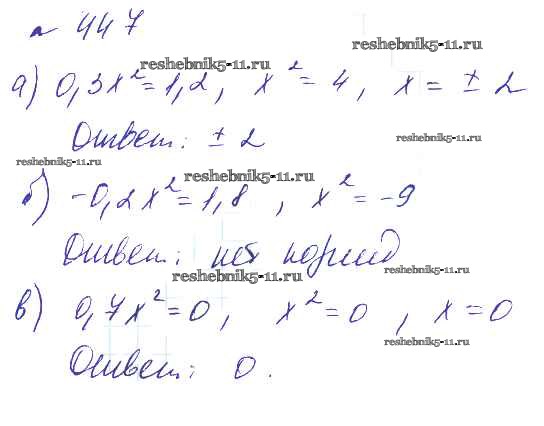 № 447
reshebnik5-11.ru
reshebnik5-11.ru
а) 0,3x² = 1,2, x² = 4, x = ± 2
Ответ: ± 2
reshebnik5-11.ru
reshebnik5-11.ru
reshebnik5-11.ru
б) -0,2x² = 1,8, x² = -9
Ответ: нет корней
reshebnik5-11.ru
reshebnik5-11.ru
в) 0,7x² = 0, x² = 0, x = 0
reshebnik5-11.ru
Ответ: 0.